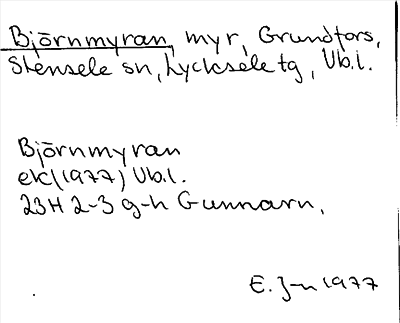 Björnmyran, myr, Grundfors,
Stensele sn, Lycksele tg, Vb.l.
Björnmyran
ek (1977) Vb.l.
23H 2-3 g-h Gunnarn.
E. J-n 1977